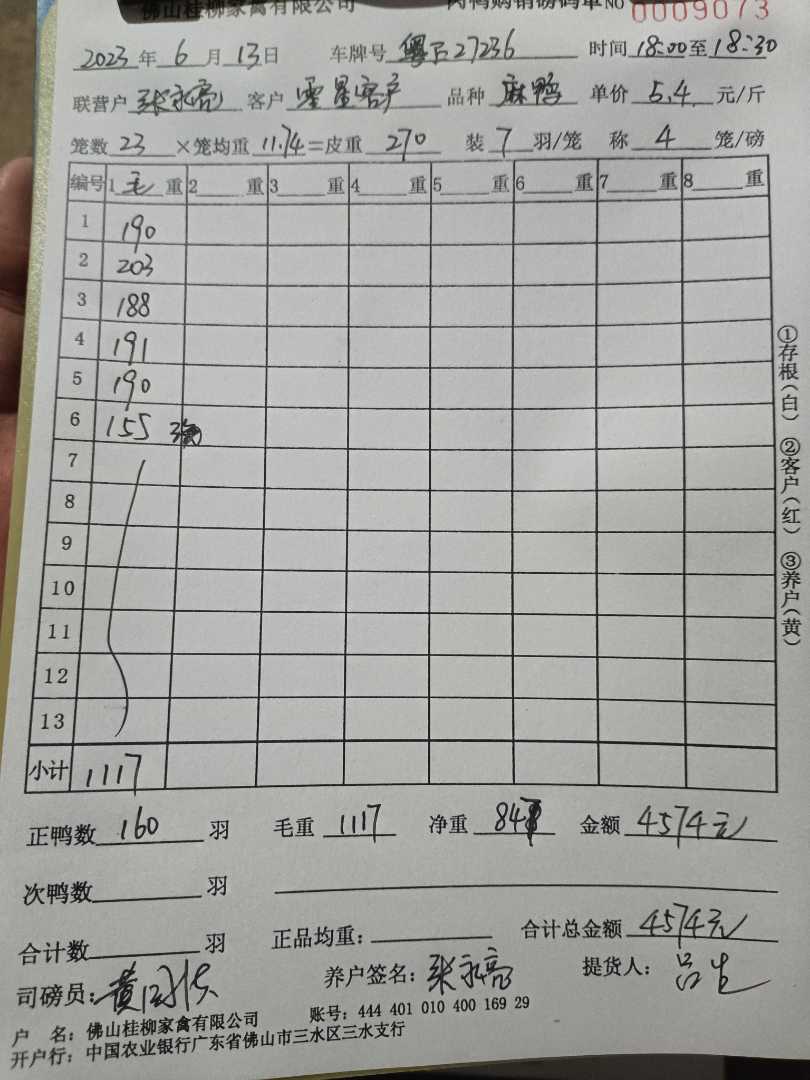 佛山桂柳家禽有限公司 肉鸭购销磅码单 No 0009073
2023 年 6 月 13 日 车牌号 粤 27236 时间 18:00 至 18:30
联营户 张永亮 客户 零星客户 品种 麻鸭 单价 5.4 元/斤
笼数 23 ×笼均重 11.74 =皮重 270 装 7 羽/笼 称 4 笼/磅
编号 1 毛 重 2 重 3 重 4 重 5 重 6 重 7 重 8 重
1 190
2 203
3 188
4 191
5 190
6 155
7
8
9
10
11
12
13
小计 1117
正鸭数 160 羽 毛重 1117 净重 847 金额 4574元
次鸭数 羽
合计数 羽 正品均重: 合计总金额 4574元
司磅员: 黄 养户签名: 张永亮 提货人: 吕生
户 名: 佛山桂柳家禽有限公司 账号: 444 401 010 400 169 29
开户行: 中国农业银行广东省佛山市三水区三水支行
①存根(白) ②客户(红) ③养户(黄)